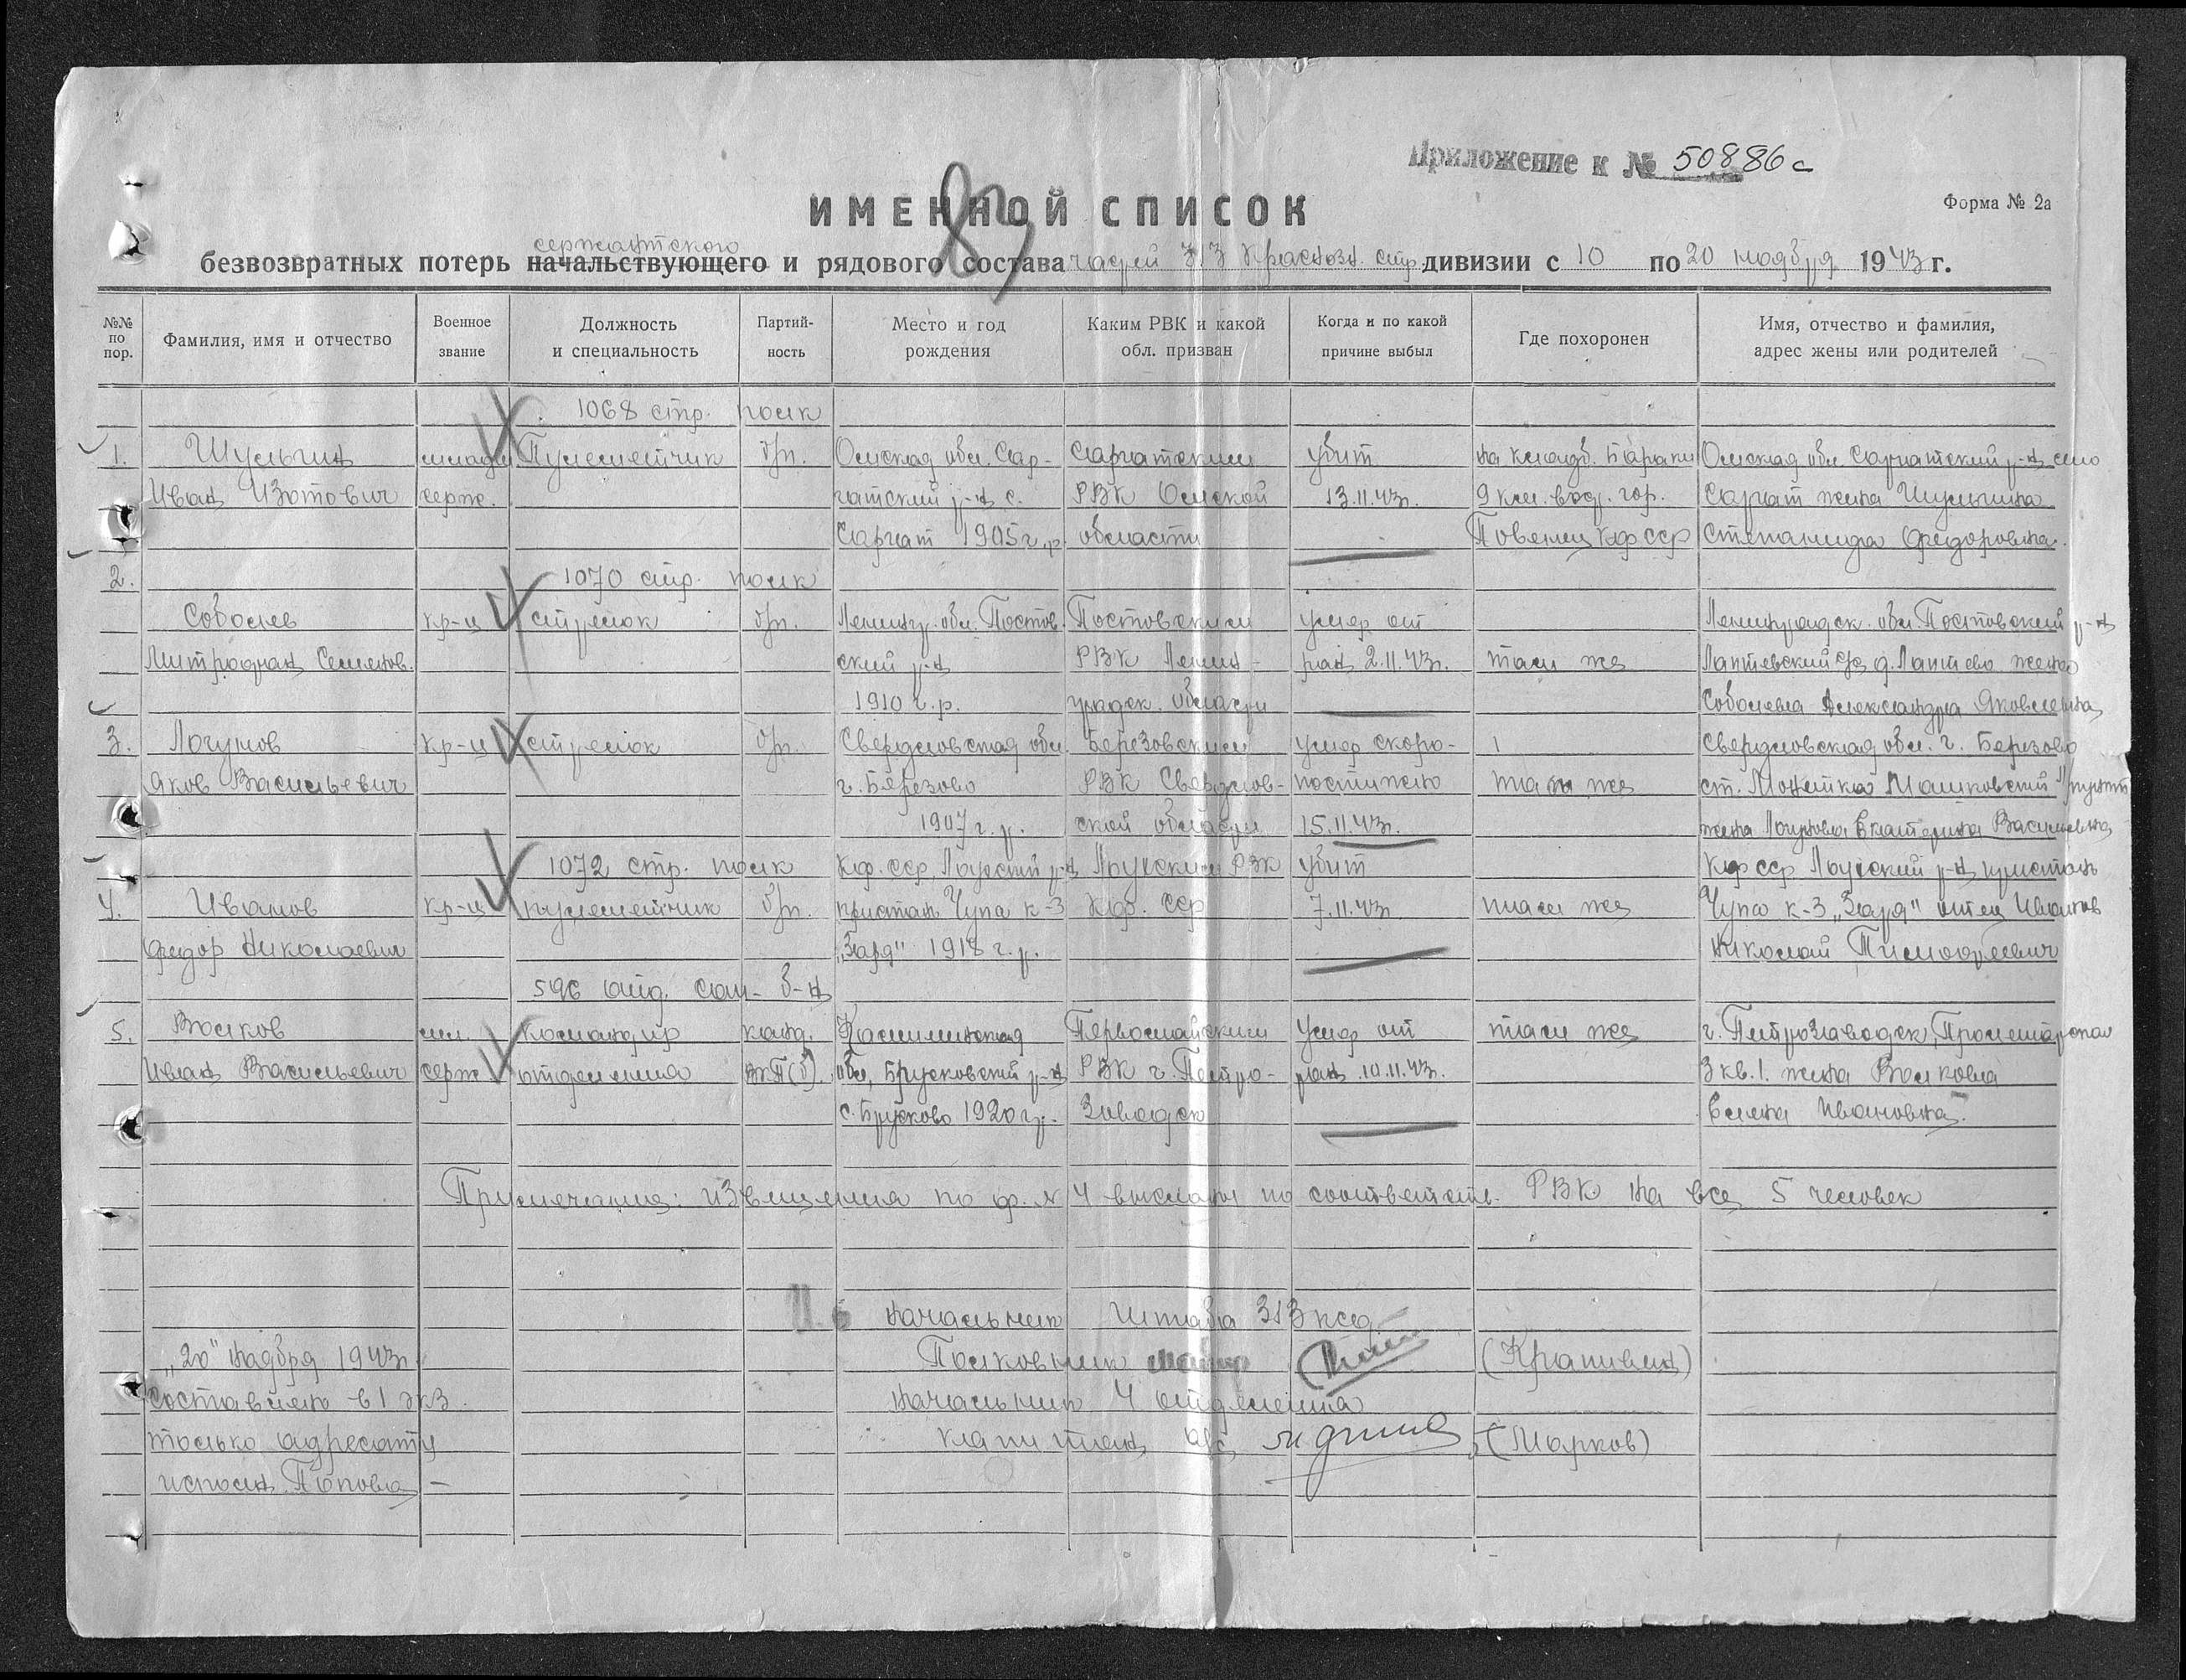 Приложение к № 50886с
87
ИМЕННОЙ СПИСОК
Форма № 2а
сержантского
безвозвратных потерь начальствующего и рядового состава частей 313 Краснозн. стр. дивизии с 10 по 20 ноября 1943 г.
№№ по пор.
Фамилия, имя и отчество
Военное звание
Должность и специальность
Партийность
Место и год рождения
Каким РВК и какой обл. призван
Когда и по какой причине выбыл
Где похоронен
Имя, отчество и фамилия, адрес жены или родителей
1068 стр. полк
1. Шульгин младш Пулеметчик б/п. Омская обл. Сар- Саргатским убит на кладб. Бараки Омская обл. Саргатский р-н село
Иван Изотович серж. гатский р-н с. РВК Омской 13.11.43г. 9 клм. вод. гор. Саргат жена Шульгина
Саргат 1905г.р. области Повенец КФССР Степанида Федоровна.
2. 1070 стр. полк
Соболев кр-ц стрелок б/п. Ленингр. обл. Постов. Постовским умер от Ленинградск. обл. Постовский р-н
Митрофан Семенов. ский р-н РВК Ленин- ран 2.11.43г. там же Лаптевский с/с д. Лаптево жена
1910 г.р. градск. области Соболева Александра Яковлевна
3. Логунов кр-ц стрелок б/п. Свердловская обл. Березовским умер скоро- Свердловская обл. г. Березово
Яков Васильевич г. Березово РВК Свердлов- постижно там же ст. Монетка
1907 г.р. ской области 15.11.43г. жена Логунова Екатерина Васильевна
1072 стр. полк КФ.ССР Лоухский р-н Лоухским РВК убит КФССР Лоухский р-н пристань
4. Иванов кр-ц пулеметчик б/п. пристань Чупа к-з КФ. ССР 7.11.43г. там же Чупа к-з „Заря" отец Иванов
Федор Николаевич „Заря" 1918 г.р. Николай Тимофеевич
596 отд. сап. б-н
5. Волков мл. командир канд. Калининская Первомайским Умер от там же г. Петрозаводск, Пролетарская
Иван Васильевич серж. отделения ВКП(б). обл, Брусковский р-н РВК г. Петро- ран 10.11.43г. 3 кв. 1. жена Волкова
с. Брусково 1920 г.р. заводск Елена Ивановна.
Примечание: извещения по ф. № 4 высланы по соответств. РВК на все 5 человек
Начальник Штаба 313 ксд
„20" ноября 1943г. Полковник (Крапивин)
Составлен в 1 экз. Начальник 4 отделения
только адресату капитан а/с (Марков)
исполн. Попова –